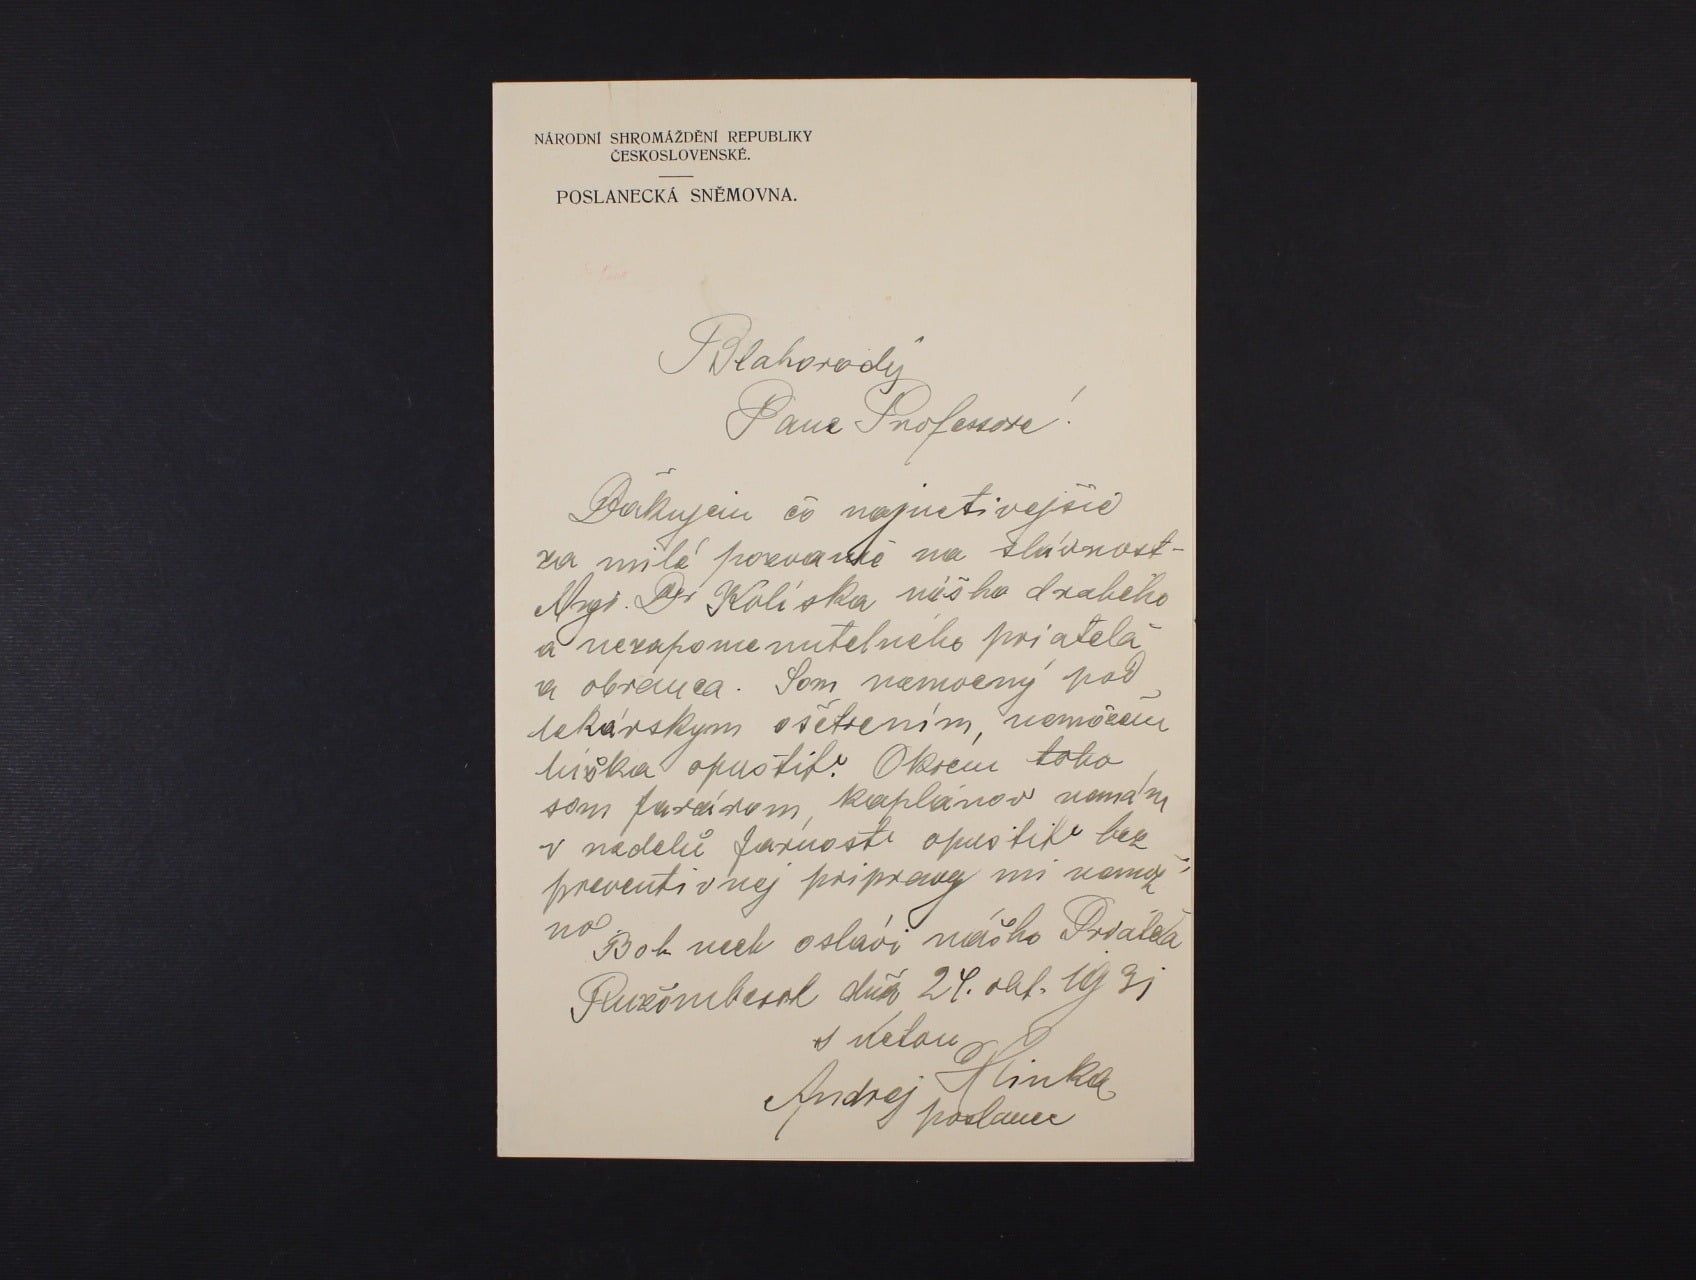 NÁRODNÍ SHROMÁŽDĚNÍ REPUBLIKY
ČESKOSLOVENSKÉ.
POSLANECKÁ SNĚMOVNA.
Blahorodý
Pane Professore!
Ďakujem čo najuctivejšie
za milé pozvanie na slávnosť
Msgr. Dr Kolíska nášho drahého
a nezapomenutelného priatelá
a obráncа. Som nemocný pod
lekárskym ošetrením, nemôžem
lúžka opustiť. Okrem toho
som farárom, kaplánov nemám
v nedelu farnosť opustiť bez
preventivnej pripravy mi nemož-
no
Boh nech oslávi nášho Priatelá
Ružomberok dňa 24. okt. 1931
s úctou
Andrej Hlinka
poslanec